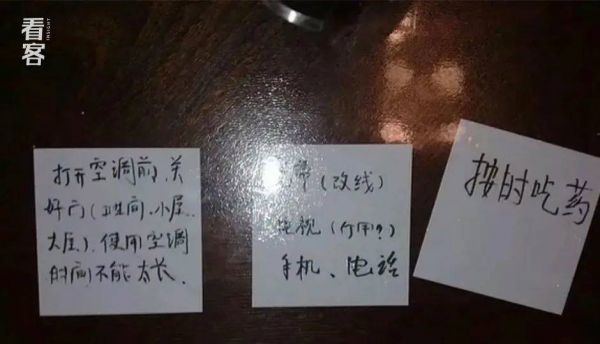 看客
INSIGHT
打开空调前，关
好门（卫生间、小屋、
大屋）、使用空调
时间不能太长、
（改线）
电视（何用？）
手机、电话
按时吃药